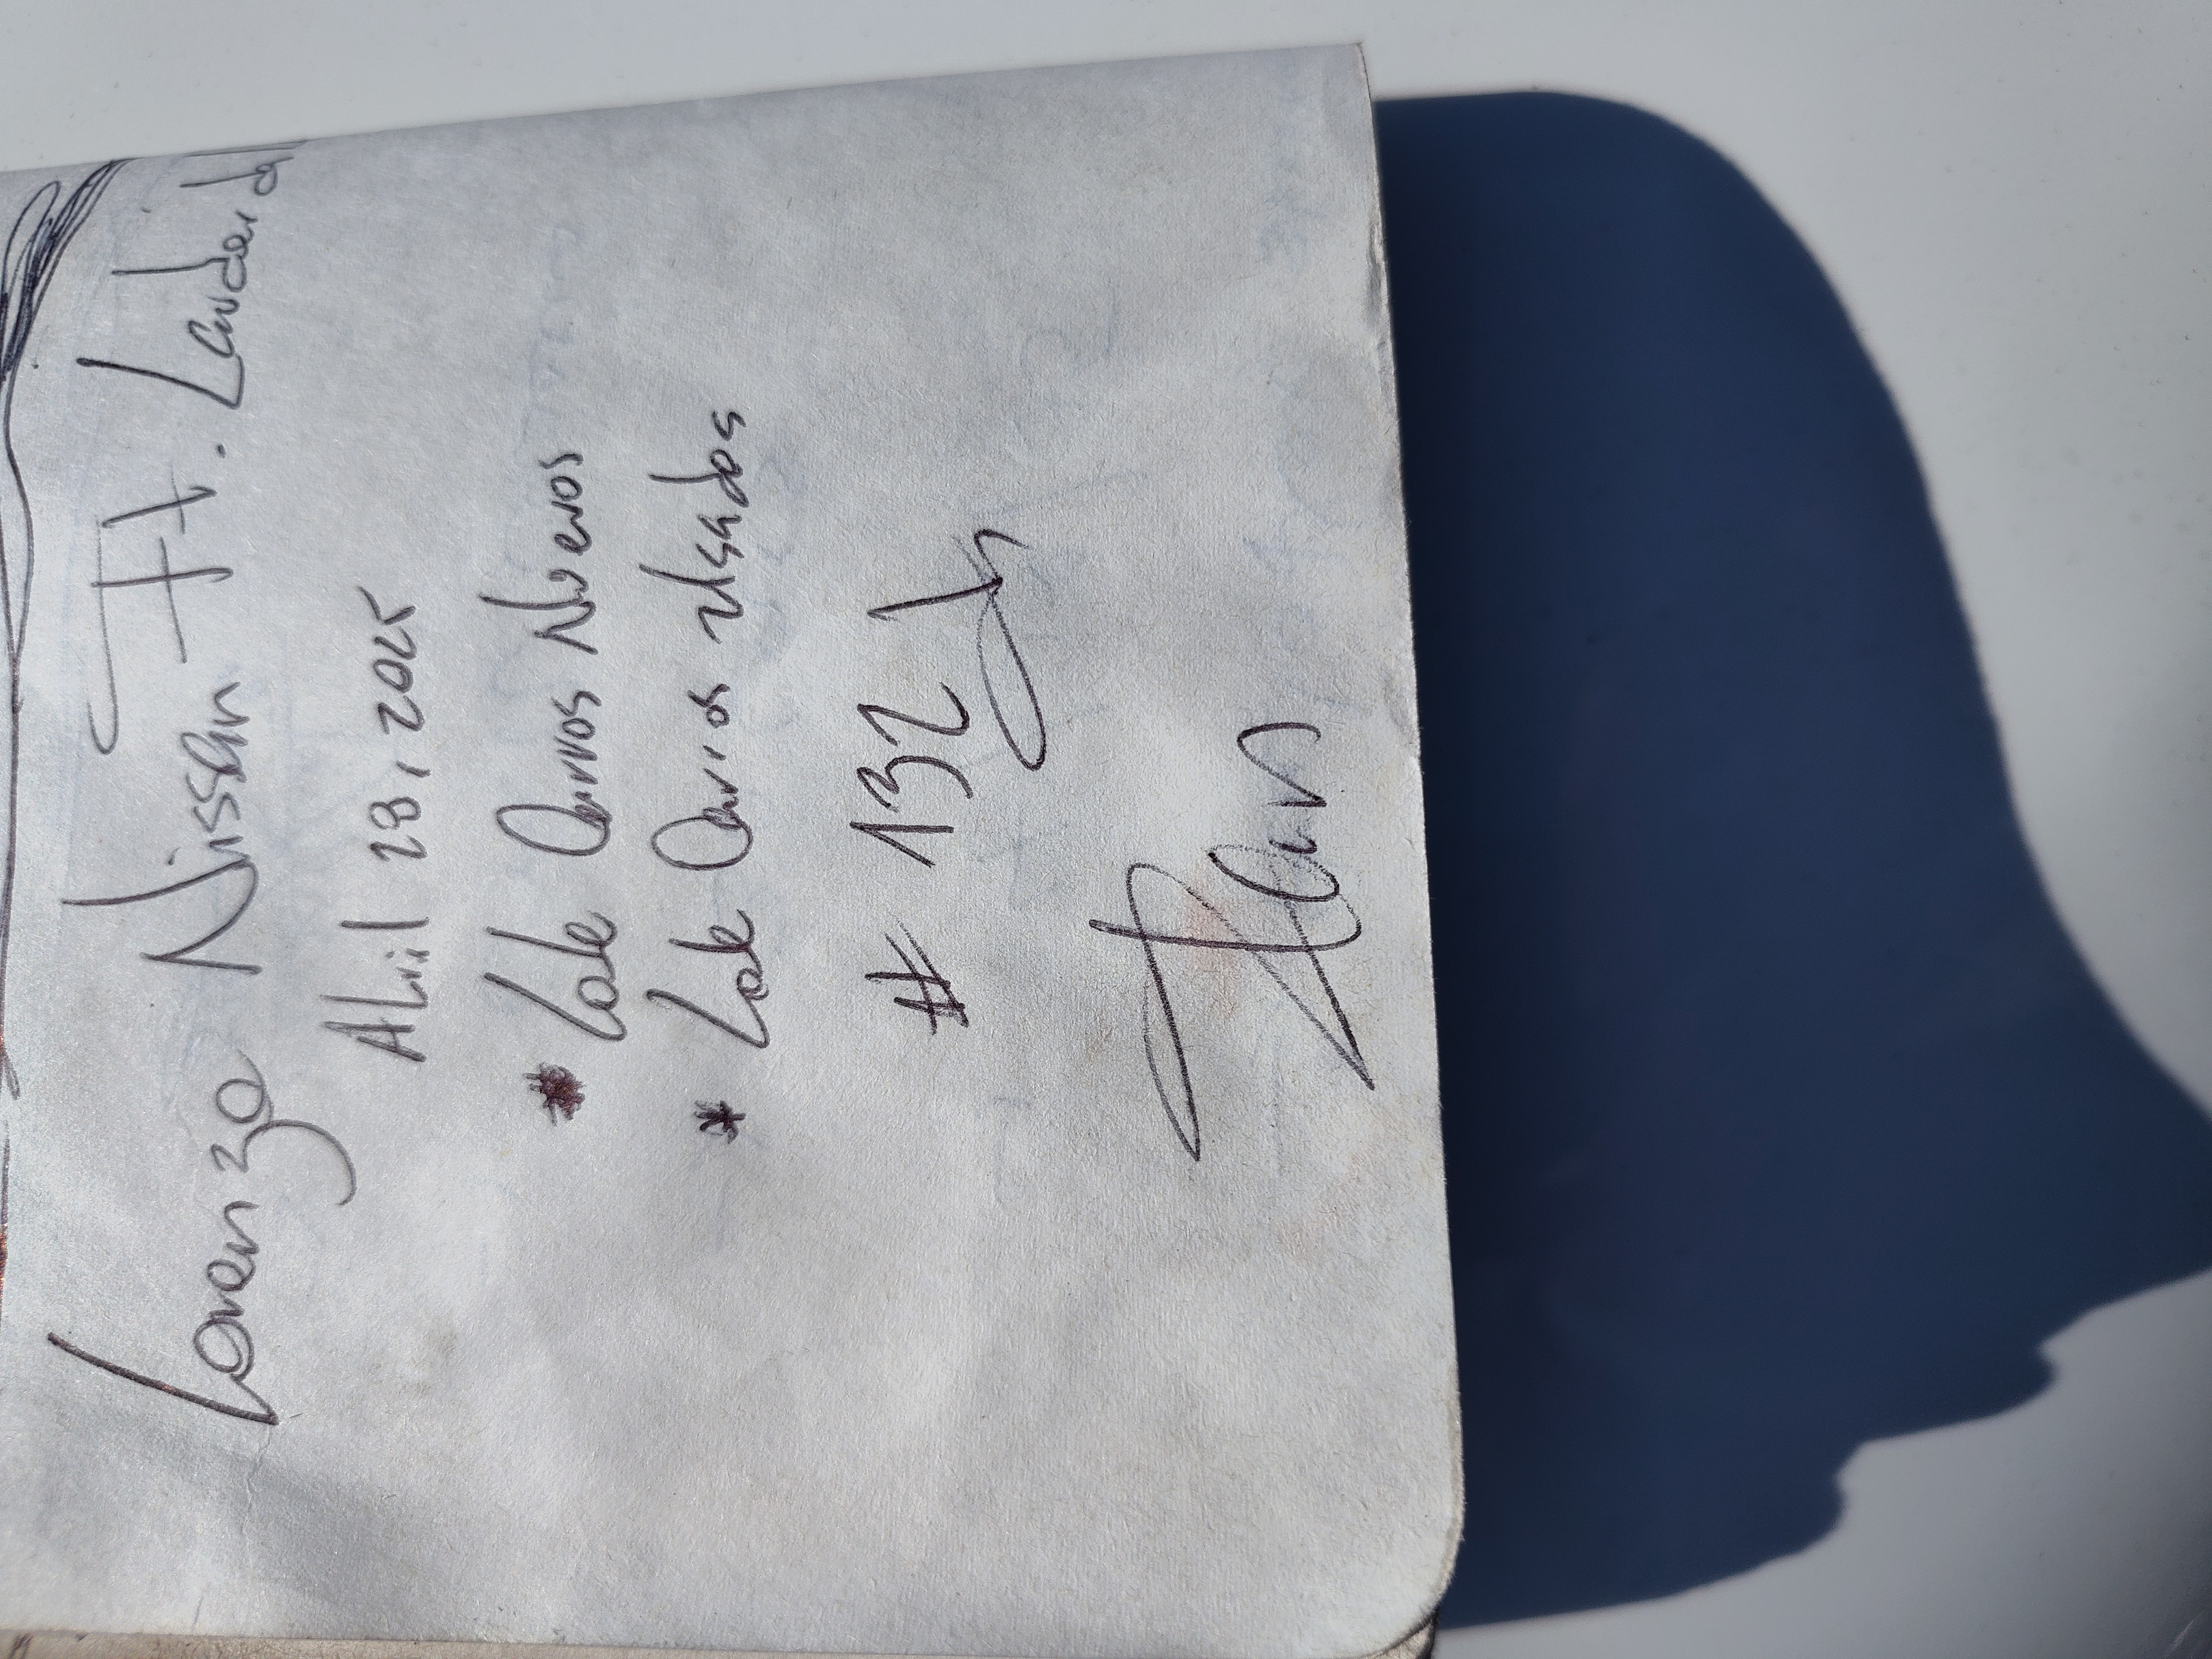 Lorenzo Nissan Ft. Lauderdal
Abril 28, 2025
* Lote Carros Nuevos
* Lote Carros Usados
# 132